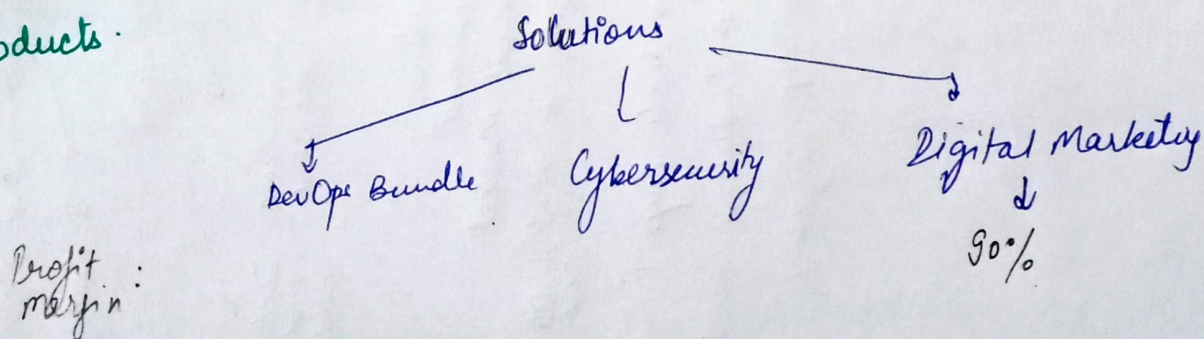 oducts.
Solutions
DevOps Bundle
Cybersecurity
Digital Marketing
90%
Profit
margin :